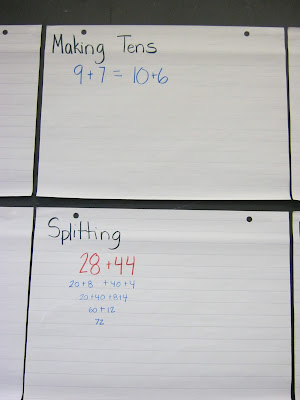 Making Tens
9+7 = 10+6
Splitting
28+44
20+8 +40+4
20+40+8+4
60+12
72